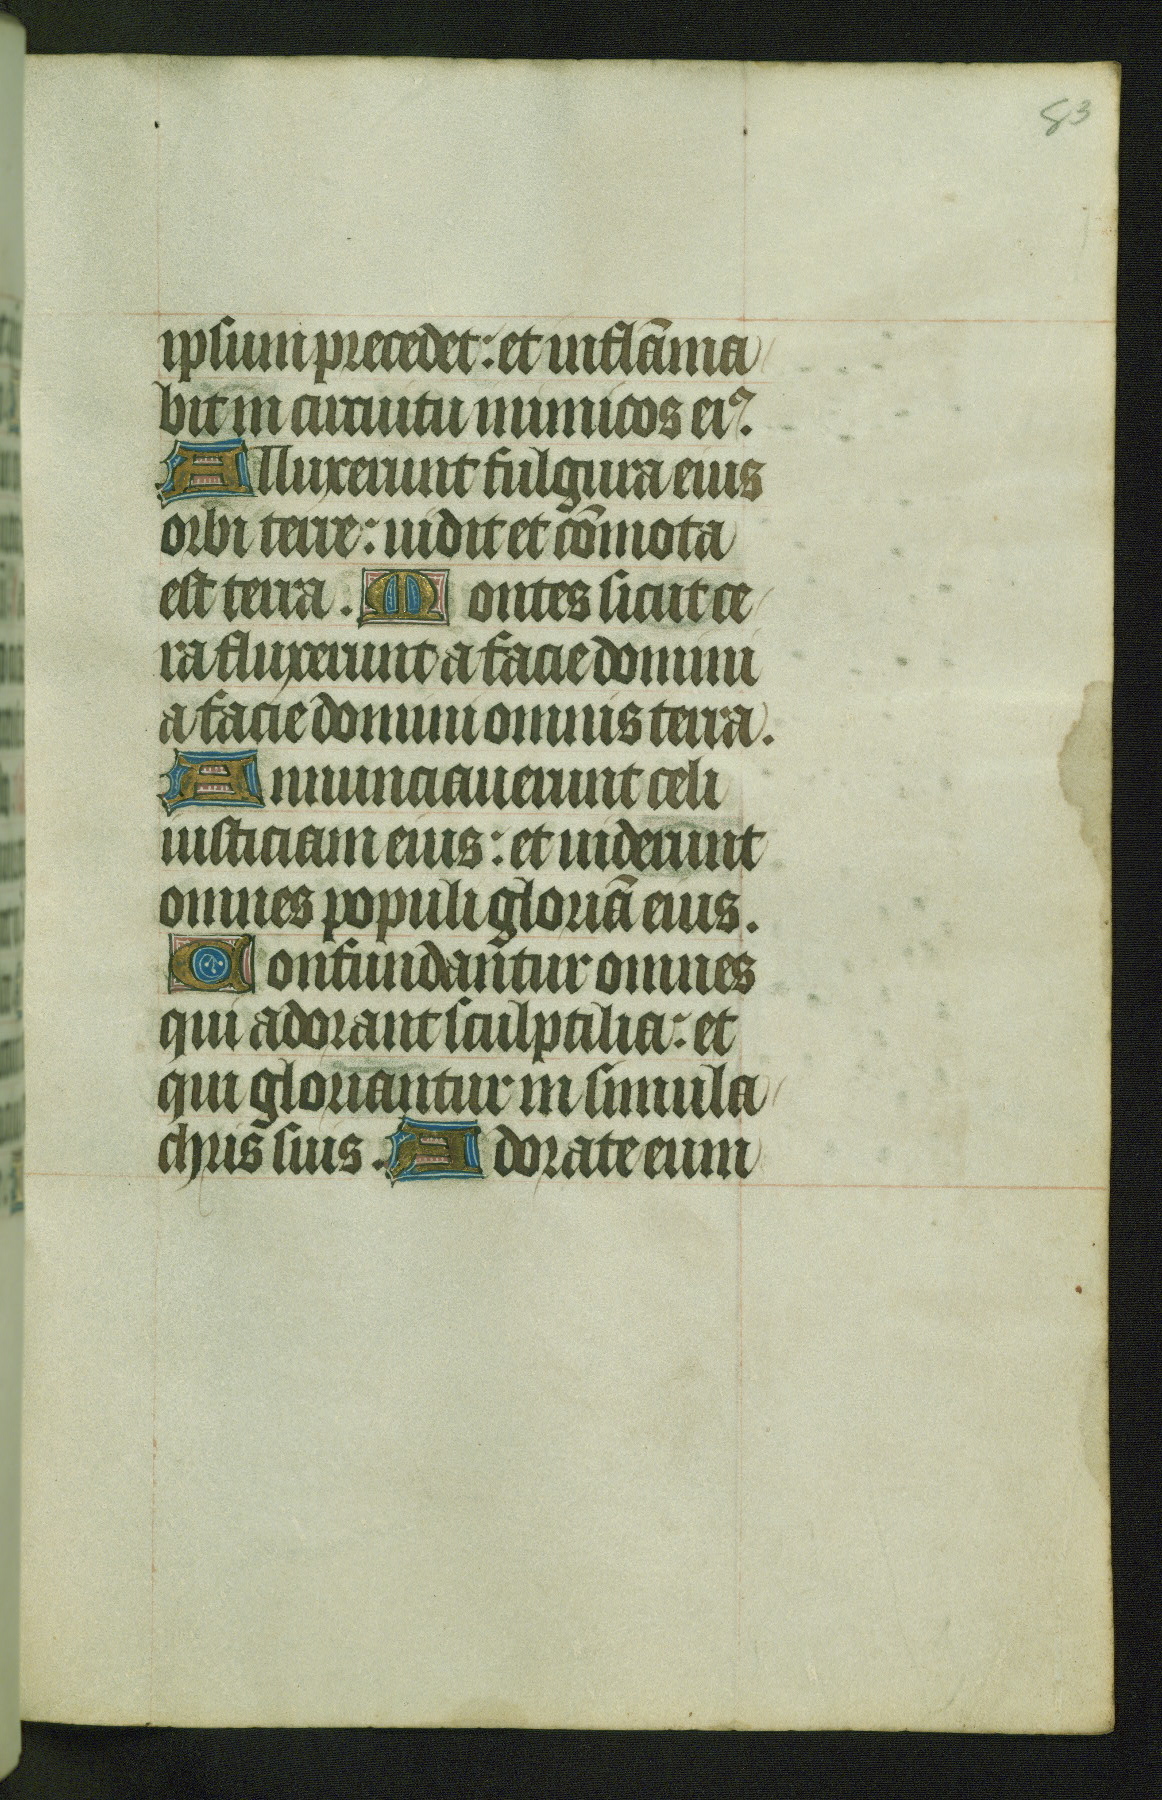 83
ipsum precedet: et inflāma
bit in circuitu inimicos eiꝰ.
Alluxerunt fulgura eius
orbi terre: uidit et cōmota
est terra. Montes sicut ce
ra fluxerunt a facie domini
a facie domini omnis terra.
Annunciauerunt celi
iusticiam eius: et uiderunt
omnes populi gloriā eius.
Confundantur omnes
qui adorant sculptilia: et
qui gloriantur in simula
chris suis. Adorate eum